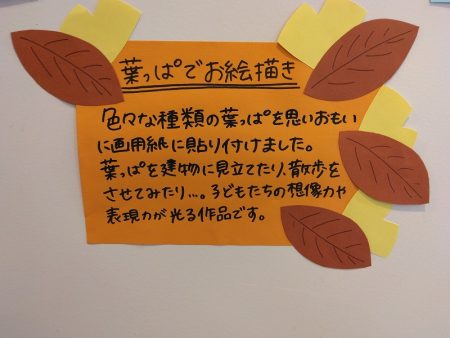 葉っぱでお絵描き
色々な種類の葉っぱを思いおもい
に画用紙に貼り付けました。
葉っぱを建物に見立てたり、散歩を
させてみたり…。子どもたちの想像力や
表現力が光る作品です。